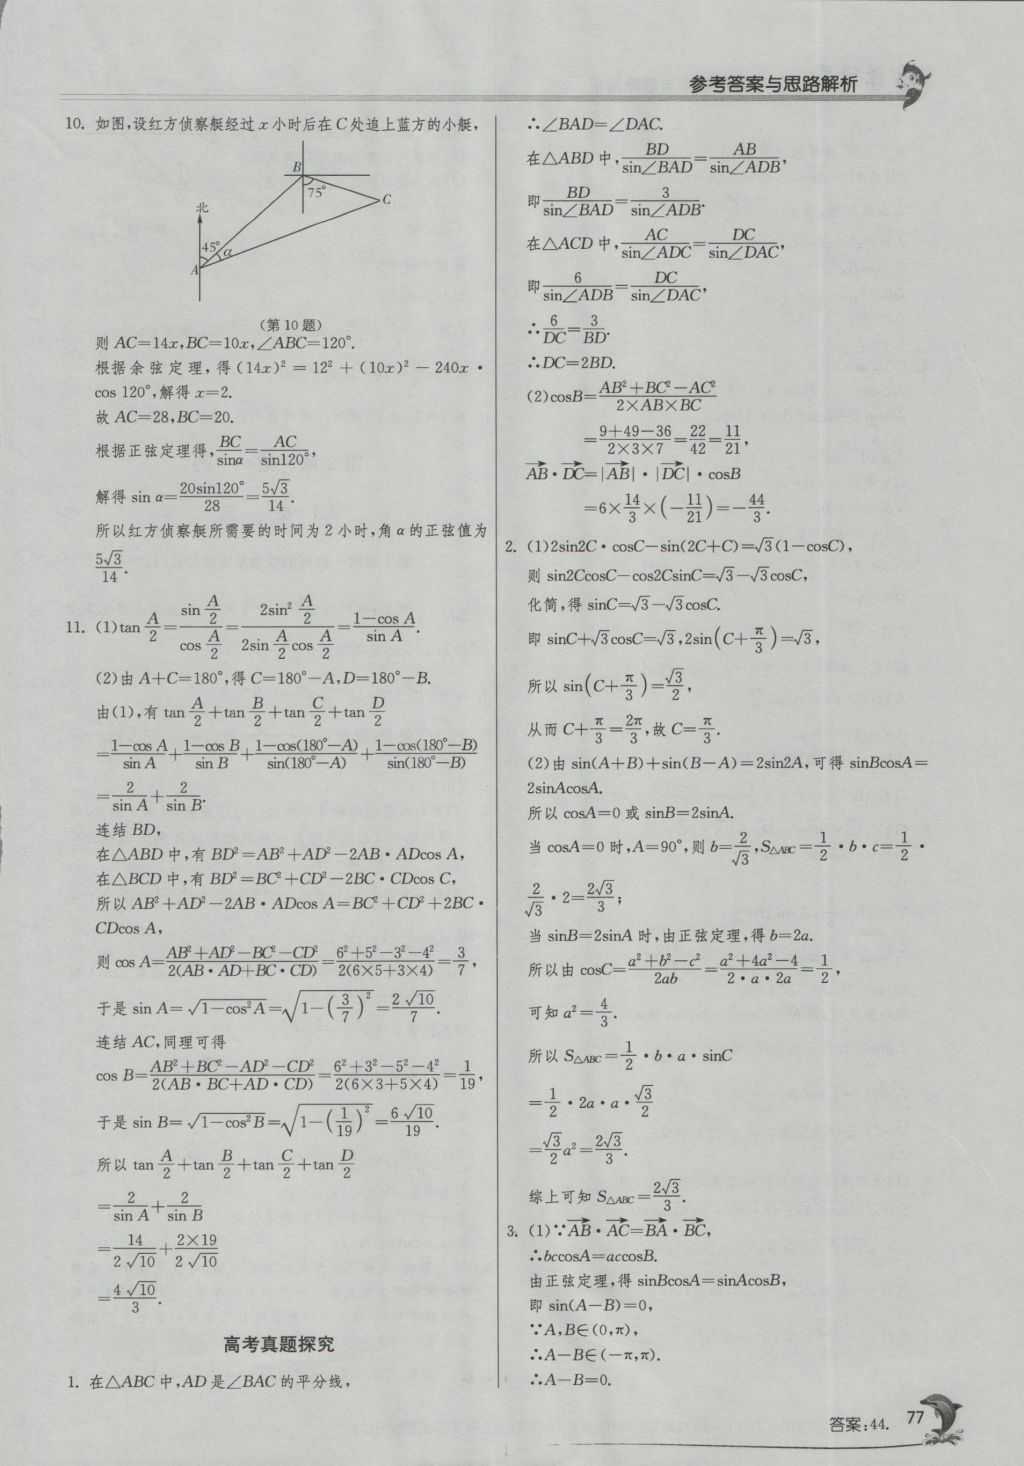 参考答案与思路解析
10. 如图,设红方侦察艇经过 x 小时后在 C 处追上蓝方的小艇,
B
75°
C
北
45°
α
A
(第 10 题)
则 AC=14x,BC=10x,∠ABC=120°.
根据余弦定理,得 (14x)² = 12² + (10x)² − 240x ·
cos 120°,解得 x=2.
故 AC=28,BC=20.
根据正弦定理得, BC/sinα = AC/sin120°,
解得 sin α= 20sin120°/28 = 5√3/14.
所以红方侦察艇所需要的时间为 2 小时,角 α 的正弦值为
5√3/14.
11. (1)tan A/2 = (sin A/2)/(cos A/2) = (2sin² A/2)/(2sin A/2 cos A/2) = (1−cos A)/(sin A).
(2)由 A+C=180°,得 C=180°−A,D=180°−B.
由(1),有 tan A/2 +tan B/2 +tan C/2 +tan D/2
= (1−cos A)/(sin A) + (1−cos B)/(sin B) + (1−cos(180°−A))/(sin(180°−A)) + (1−cos(180°−B))/(sin(180°−B))
= 2/(sin A) + 2/(sin B).
连结 BD,
在△ABD 中,有 BD²=AB²+AD²−2AB·ADcos A,
在△BCD 中,有 BD²=BC²+CD²−2BC·CDcos C,
所以 AB²+AD²−2AB·ADcos A=BC²+CD²+2BC·
CDcos A,
则 cos A= (AB²+AD²−BC²−CD²)/(2(AB·AD+BC·CD)) = (6²+5²−3²−4²)/(2(6×5+3×4)) = 3/7,
于是 sin A= √(1−cos²A) = √(1−(3/7)²) = 2√10/7.
连结 AC,同理可得
cos B= (AB²+BC²−AD²−CD²)/(2(AB·BC+AD·CD)) = (6²+3²−5²−4²)/(2(6×3+5×4)) = 1/19,
于是 sin B= √(1−cos²B) = √(1−(1/19)²) = 6√10/19.
所以 tan A/2 +tan B/2 +tan C/2 +tan D/2
= 2/(sin A) + 2/(sin B)
= 14/(2√10) + (2×19)/(2√10)
= 4√10/3.
高考真题探究
1. 在△ABC 中,AD 是∠BAC 的平分线,
∴∠BAD=∠DAC.
在△ABD 中, BD/sin∠BAD = AB/sin∠ADB,
即 BD/sin∠BAD = 3/sin∠ADB.
在△ACD 中, AC/sin∠ADC = DC/sin∠DAC,
即 6/sin∠ADB = DC/sin∠DAC,
∴ 6/DC = 3/BD.
∴DC=2BD.
(2)cosB= (AB²+BC²−AC²)/(2×AB×BC)
= (9+49−36)/(2×3×7) = 22/42 = 11/21,
AB→·DC→=|AB→|·|DC→|·cosB
=6× 14/3 ×(− 11/21)=− 44/3.
2. (1)2sin2C·cosC−sin(2C+C)=√3(1−cosC),
则 sin2CcosC−cos2CsinC=√3−√3cosC,
化简,得 sinC=√3−√3cosC.
即 sinC+√3cosC=√3,2sin(C+ π/3)=√3,
所以 sin(C+ π/3)= √3/2,
从而 C+ π/3 = 2π/3,故 C= π/3.
(2)由 sin(A+B)+sin(B−A)=2sin2A,可得 sinBcosA=
2sinAcosA.
所以 cosA=0 或 sinB=2sinA.
当 cosA=0 时,A=90°,则 b= 2/√3,S△ABC= 1/2 ·b·c= 1/2 ·
2/√3 ·2= 2√3/3;
当 sinB=2sinA 时,由正弦定理,得 b=2a.
所以由 cosC= (a²+b²−c²)/(2ab) = (a²+4a²−4)/(2·a·2a) = 1/2,
可知 a²= 4/3.
所以 S△ABC= 1/2 ·b·a·sinC
= 1/2 ·2a·a· √3/2
= √3/2 a²= 2√3/3.
综上可知 S△ABC= 2√3/3.
3. (1)∵AB→·AC→=BA→·BC→,
∴bccosA=accosB.
由正弦定理,得 sinBcosA=sinAcosB,
即 sin(A−B)=0,
∵A,B∈(0,π),
∴A−B∈(−π,π).
∴A−B=0.
答案:44. 77